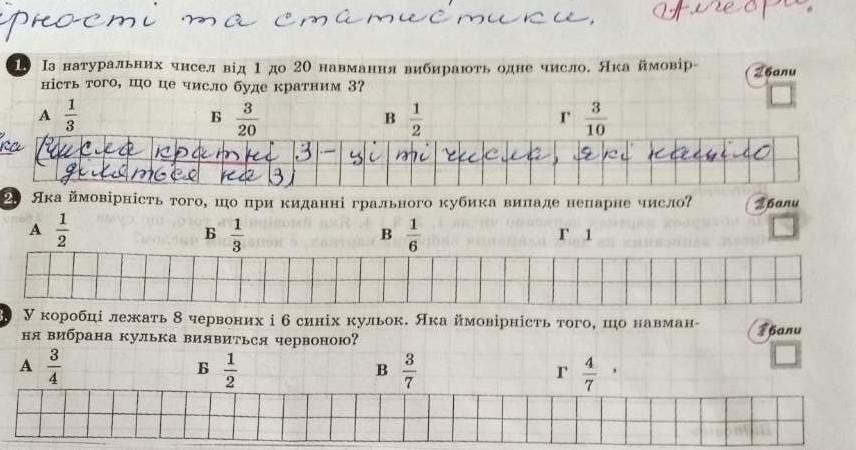 та статистики.
1. Із натуральних чисел від 1 до 20 навмання вибирають одне число. Яка ймовір-
ність того, що це число буде кратним 3?
2 бали
А 1/3 Б 3/20 В 1/2 Г 3/10
(числа кратні 3 – ці ті числа, які націло
діляться на 3)
2. Яка ймовірність того, що при киданні грального кубика випаде непарне число?
2 бали
А 1/2 Б 1/3 В 1/6 Г 1
3. У коробці лежать 8 червоних і 6 синіх кульок. Яка ймовірність того, що навман-
ня вибрана кулька виявиться червоною?
бали
А 3/4 Б 1/2 В 3/7 Г 4/7